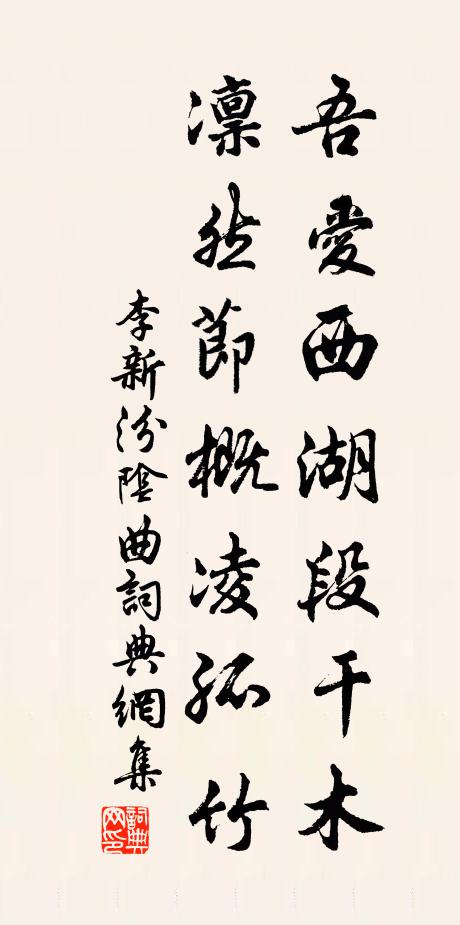 吾愛西湖段干木
凛然節概凌孤竹
李新汾陰曲詞典網集
詞典網印